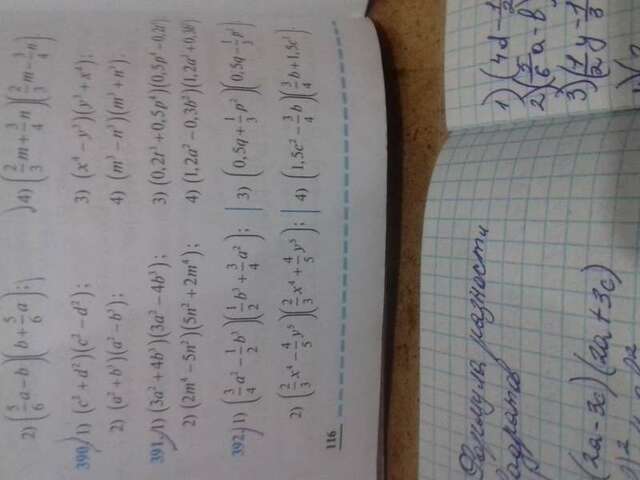 2) (5/6 a − b)(b + 5/6 a);
4) (2/3 m + 3/4 n)(2/3 m − 3/4 n)
390. 1) (c² + d²)(c² − d²);
3) (x⁴ − y³)(y³ + x⁴);
2) (a² + b³)(a² − b³);
4) (m³ − n³)(m³ + n³).
391. 1) (3a² + 4b³)(3a² − 4b³);
3) (0,2t³ + 0,5p⁴)(0,5p⁴ − 0,2t³
2) (2m⁴ − 5n²)(5n² + 2m⁴);
4) (1,2a² − 0,3b²)(1,2a² + 0,3b²
392. 1) (3/4 a² − 1/2 b³)(1/2 b³ + 3/4 a²);
3) (0,5q + 1/3 p²)(0,5q − 1/3 p²)
2) (2/3 x⁴ − 4/5 y⁵)(2/3 x⁴ + 4/5 y⁵);
4) (1,5c² − 3/4 b)(3/4 b + 1,5c²)
116
Формула разности
(2a − 3c)(2a + 3c)
1) (4d − 1/2
2) (5/6 a − b)
3) (1/2 y − 1/3